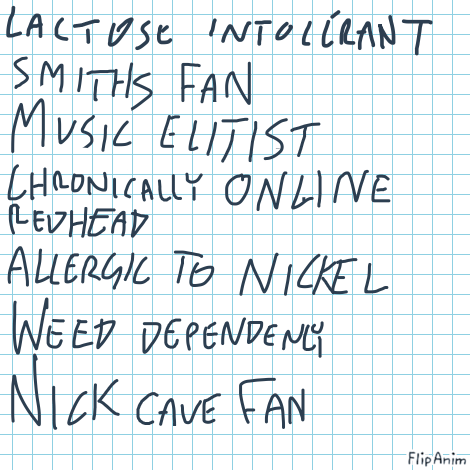 LACTOSE INTOLIRANT
SMITHS FAN
MUSIC ELITIST
CHRONICALLY ONLINE
REDHEAD
ALLERGIC TO NICKEL
WEED DEPENDENCY
NICK CAVE FAN
FlipAnim